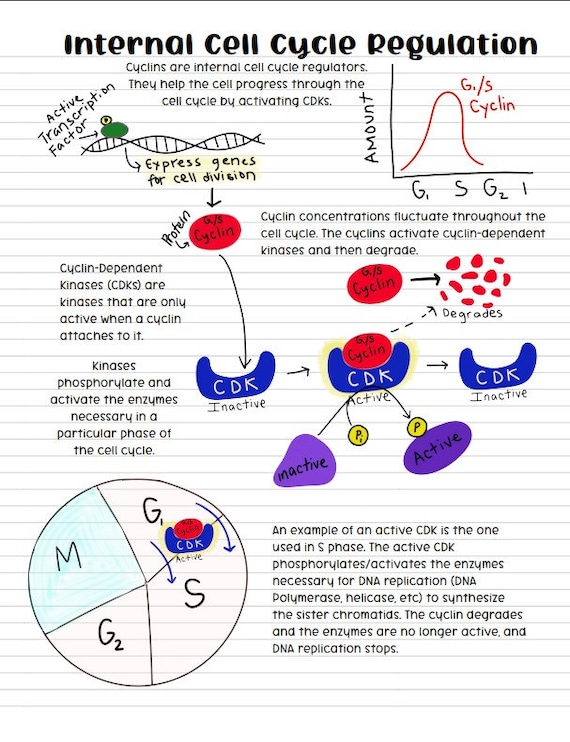 Internal Cell Cycle Regulation
Cyclins are internal cell cycle regulators.
They help the cell progress through the
cell cycle by activating CDKs.
Active
Transcription
Factor
P
Express genes
for cell division
AMOUNT
G₁/S
Cyclin
G₁ S G₂ 1
Protein
G₁/S
Cyclin
Cyclin concentrations fluctuate throughout the
cell cycle. The cyclins activate cyclin-dependent
kinases and then degrade.
G₁/S
Cyclin
Degrades
Cyclin-Dependent
kinases (CDKs) are
kinases that are only
active when a cyclin
attaches to it.
CDK
Inactive
G₁/S
Cyclin
CDK
Active
CDK
Inactive
Kinases
phosphorylate and
activate the enzymes
necessary in a
particular phase of
the cell cycle.
inactive
Pᵢ
P
Active
M
G₁
G₁/S
Cyclin
CDK
Active
S
G₂
An example of an active CDK is the one
used in S phase. The active CDK
phosphorylates/activates the enzymes
necessary for DNA replication (DNA
Polymerase, helicase, etc) to synthesize
the sister chromatids. The cyclin degrades
and the enzymes are no longer active, and
DNA replication stops.